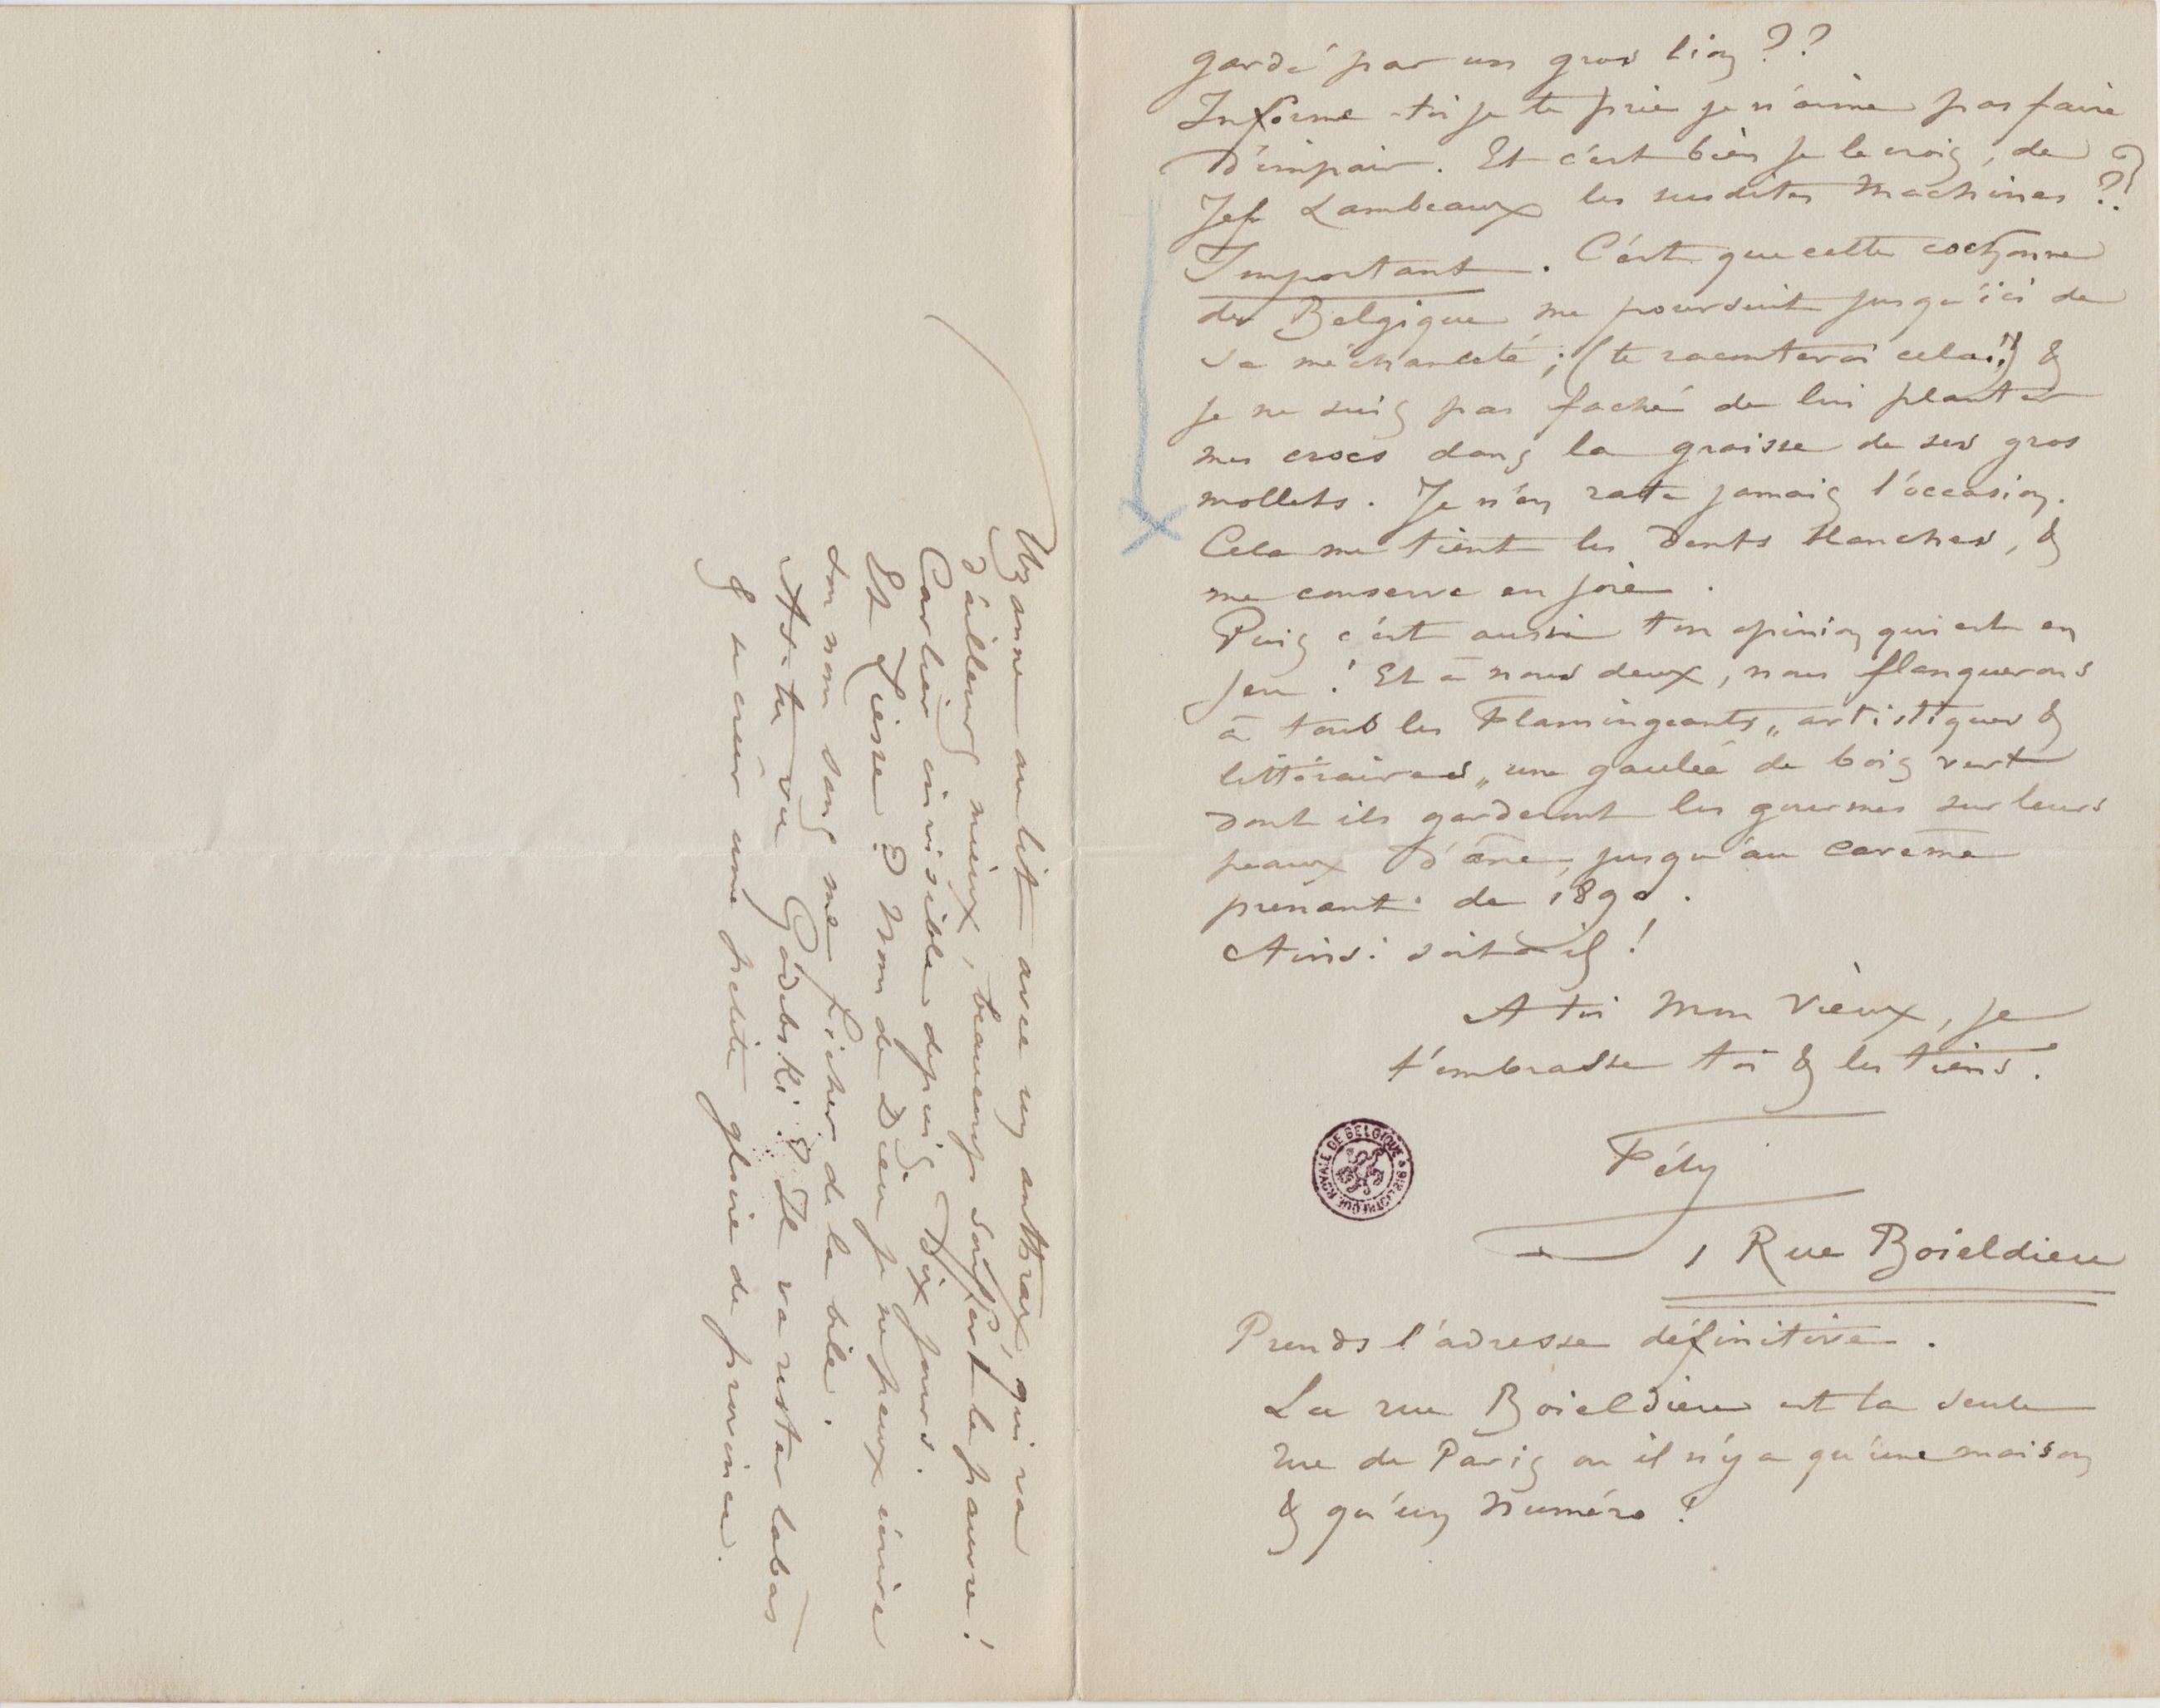 gardé par un gros lion ??
Informe-toi je te prie je n'aime pas faire
d'impair. Et c'est bien je le crois, de
Jef Lambeaux les susdites machines ???
Important. C'est que cette cochonne
de Belgique me poursuit jusqu'ici de
sa méchanceté ; (te raconterai cela !!) &
je ne suis pas faché de lui planter
mes crocs dans la graisse de ses gros
mollets. Je n'en rate jamais l'occasion.
Cela me tient les dents blanches, &
me conserve en joie.
Puis c'est aussi ton opinion qui est en
jeu ! Et à nous deux, nous flanquerons
à tous les Flamingeants „ artistiques &
littéraires „ une gaulée de bois vert
dont ils garderont les gourmes sur leurs
peaux d'âne, jusqu'au careme
prenant de 1890.
Ainsi soit-il !
A toi mon vieux, je
t'embrasse toi & les tiens.
Fély
1 Rue Boieldieu
Prends l'adresse définitive.
La rue Boieldieu est la seule
rue de Paris ou il n'y a qu'une maison
& qu'un numéro !
Uzanne au lit avec un anthrax, qui va
d'ailleurs mieux, beaucoup souffert le pauvre !
Carlier invisible depuis dix jours.
Et Liesse ? Nom de Dieu je ne peux écrire
son nom sans me ficher de la bile.
As-tu vu Godebski ? Il va rester labas
& se créer une petite gloire de province.
BIBLIOTHEQUE ROYALE DE BELGIQUE